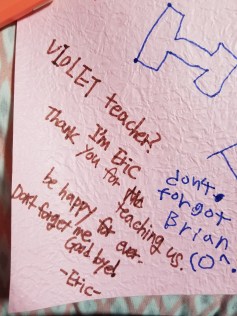 VIOLET teacher?
I'm Eric
Thank you for the teaching us.
be happy for ever.
Don't forget me.
Good bye!
-Eric-
don't
forgot
Brian